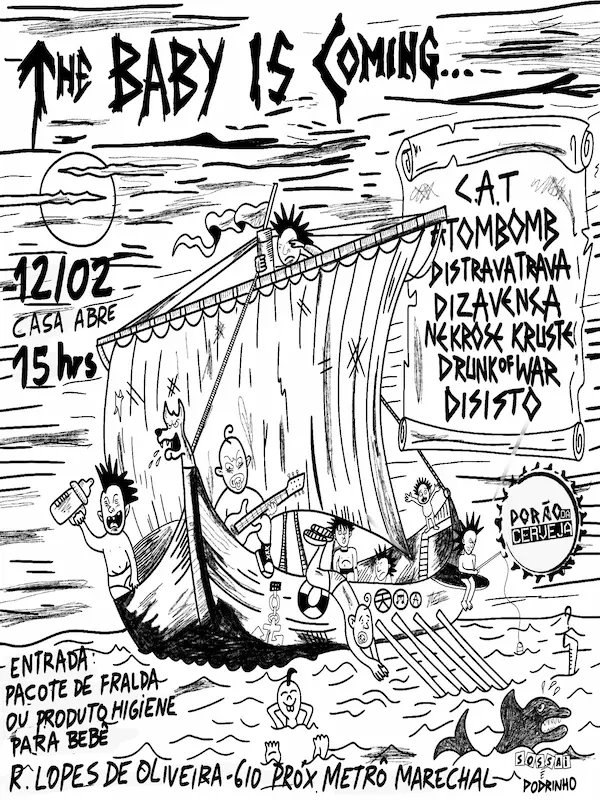 THE BABY IS COMING...
12/02
CASA ABRE
15 hrs
C.A.T
ATOMBOMB
DISTRAVATRAVA
DIZAVENSA
NEKROSE KRUSTE
DRUNK OF WAR
DISISTO
PORÃO DA
CERVEJA
ENTRADA:
PACOTE DE FRALDA
OU PRODUTO HIGIENE
PARA BEBÊ
R. LOPES DE OLIVEIRA-610 PRÓX METRÔ MARECHAL
SOSSAI
E
PODRINHO